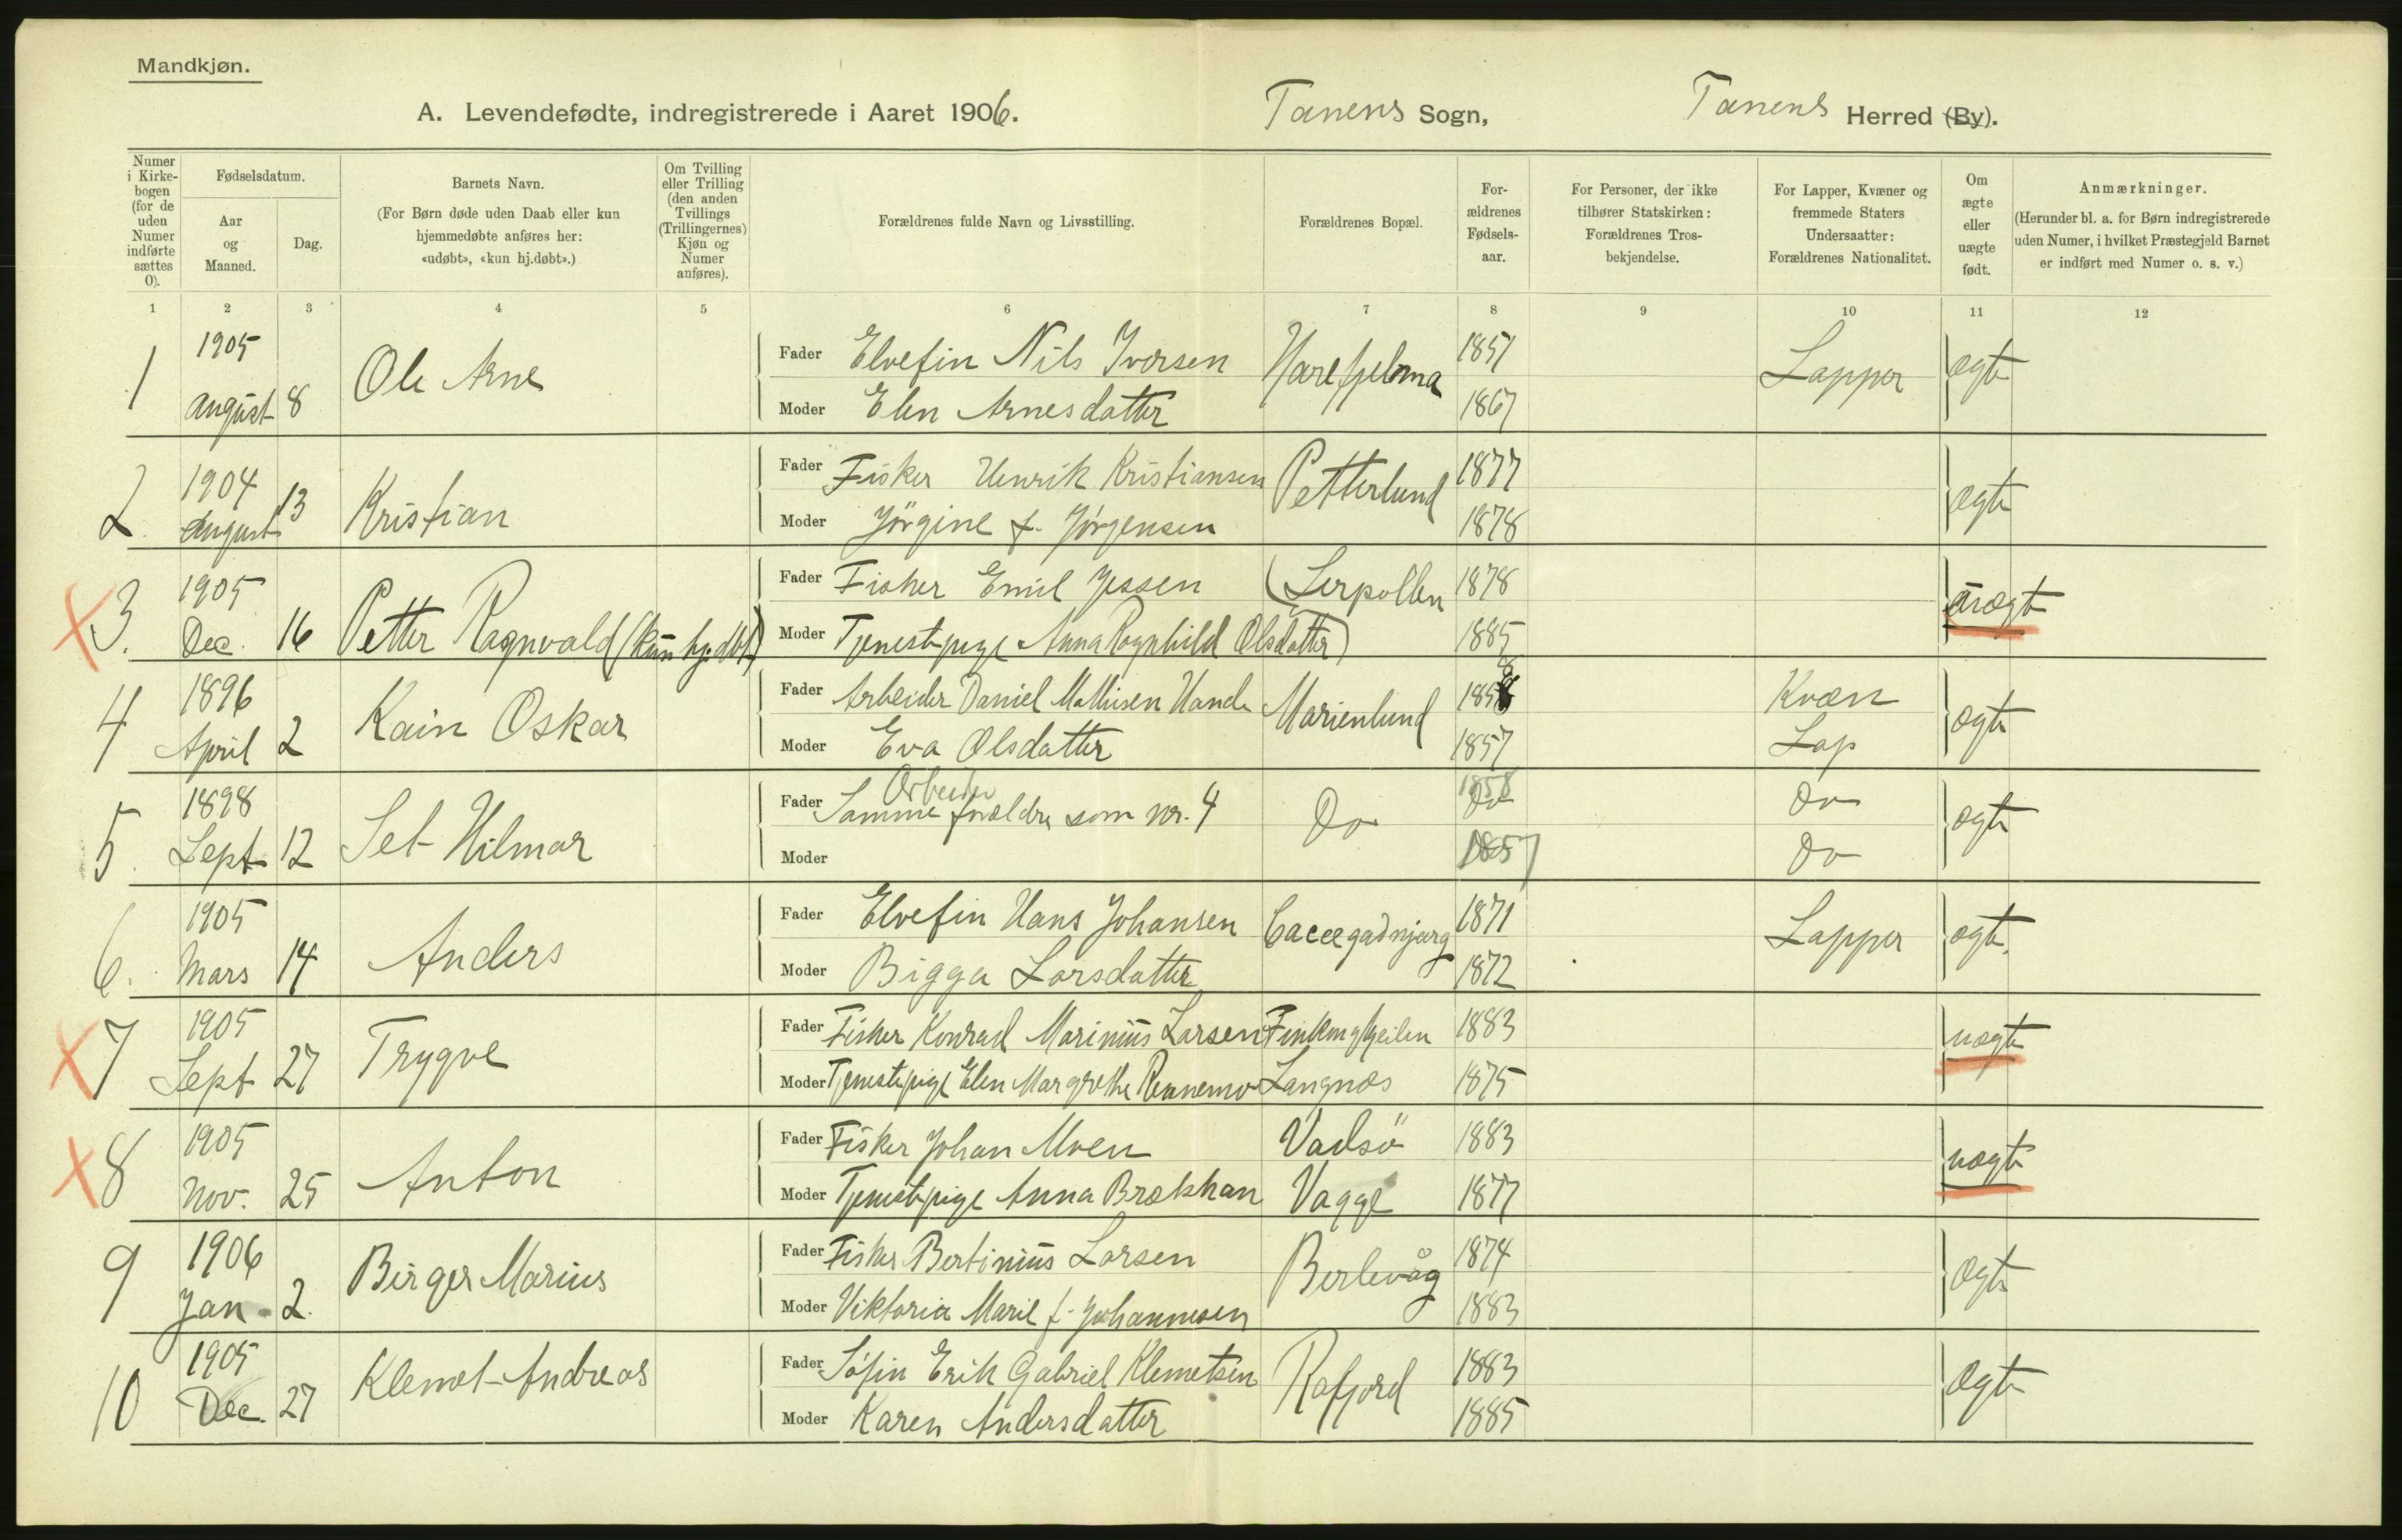 Mandkjøn.
A. Levendefødte, indregistrerede i Aaret 1906. Tanens Sogn, Tanens Herred (By).
Numer i Kirke-bogen (for de uden Numer indførte sættes 0).
Fødselsdatum.
Aar og Maaned.
Dag.
Barnets Navn.
(For Børn døde uden Daab eller kun hjemmedøbte anføres her: «udøbt», «kun hj.døbt».)
Om Tvilling eller Trilling (den anden Tvillings (Trillingernes) Kjøn og Numer anføres).
Forældrenes fulde Navn og Livsstilling.
Forældrenes Bopæl.
For-ældrenes Fødsels-aar.
For Personer, der ikke tilhører Statskirken: Forældrenes Tros-bekjendelse.
For Lapper, Kvæner og fremmede Staters Undersaatter: Forældrenes Nationalitet.
Om ægte eller uægte født.
Anmærkninger.
(Herunder bl. a. for Børn indregistrerede uden Numer, i hvilket Præstegjeld Barnet er indført med Numer o. s. v.)
1 2 3 4 5 6 7 8 9 10 11 12
1 1905 August 8 Ole Arne
Fader Elvefin Nils Iversen 1851 Lapper ægte
Moder Elen Arnesdatter 1867
2. 1904 August 13 Kristian
Fader Fisker Henrik Kristiansen Petterlund 1877 ægte
Moder Jörgine f. Jörgensen 1878
X 3. 1905 Dec. 16 Petter Ragnvald (kun hj. dbt)
Fader Fisker Emil Jessen (Lerpollen 1878 uægte
Moder Tjenestepige Anna Ragnhild Olsdatter) 1885
4 1896 April 2 Kain Oskar
Fader Arbeider Daniel Mathisen Marienlund 1858 Kvæn ægte
Moder Eva Olsdatter 1857 Lap
5. 1898 Sept 12 Set Hilmar
Arbeider
Fader Samme forældre som nr. 4 Do 1858 Do Do ægte
Moder 1857 Do
6. 1905 Mars 14 Anders
Fader Elvefin Hans Johansen 1871 Lapper ægte.
Moder Bigga Larsdatter 1872
X 7 1905 Sept 27 Trygve
Fader Fisker Konrad Marinius Larsen 1883 uægte
Moder Tjenestepige Elen Margrethe Langnæs 1875
X 8 1905 Nov. 25 Anton
Fader Fisker Johan Moen Vadsö 1883 uægte
Moder Tjenestepige Anna Brækkan Vagge 1877
9 1906 Jan. 2. Birger Marius
Fader Fisker Bertinius Larsen Berlevåg 1874 ægte
Moder Viktoria Marie f. Johannesen 1883
10 1905 Dec. 27 Klemet Andreas
Fader Söfin Erik Gabriel Klemetsen Rafjord 1883 ægte
Moder Karen Andersdatter 1885